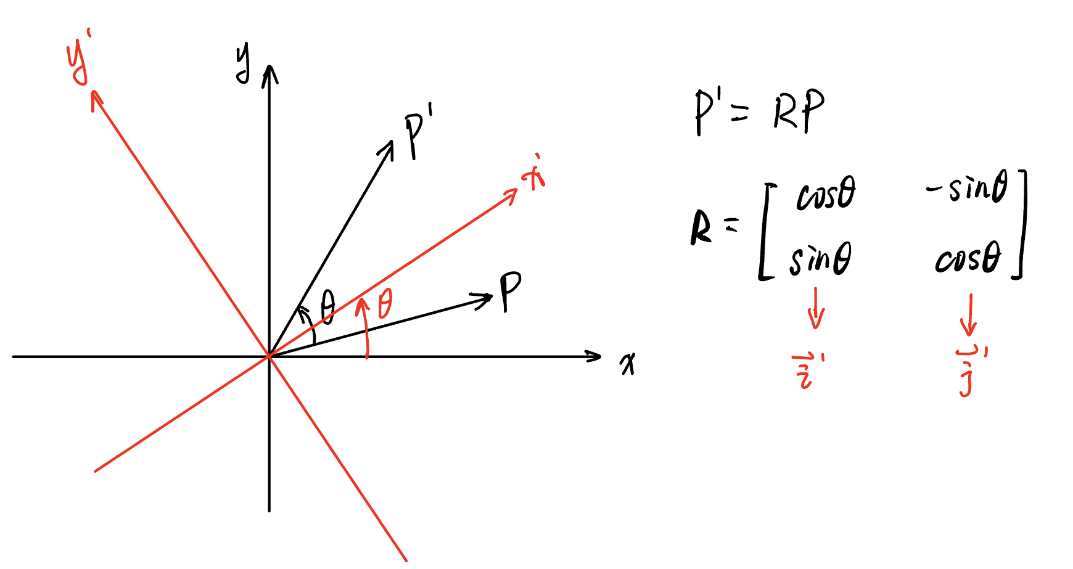 y'
y
P'
x'
θ
θ
P
x
P' = RP
R = [ cosθ -sinθ
sinθ cosθ ]
i⃗' j⃗'